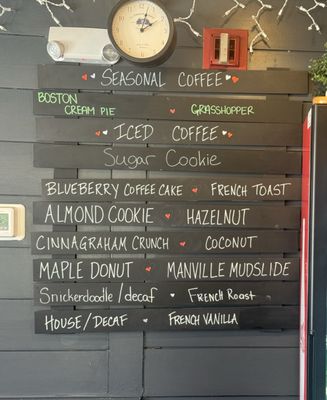 SEASONAL COFFEE
BOSTON CREAM PIE GRASSHOPPER
ICED COFFEE
Sugar Cookie
BLUEBERRY COFFEE CAKE FRENCH TOAST
ALMOND COOKIE HAZELNUT
CINNAGRAHAM CRUNCH COCONUT
MAPLE DONUT MANVILLE MUDSLIDE
Snickerdoodle/decaf French Roast
HOUSE/DECAF FRENCH VANILLA